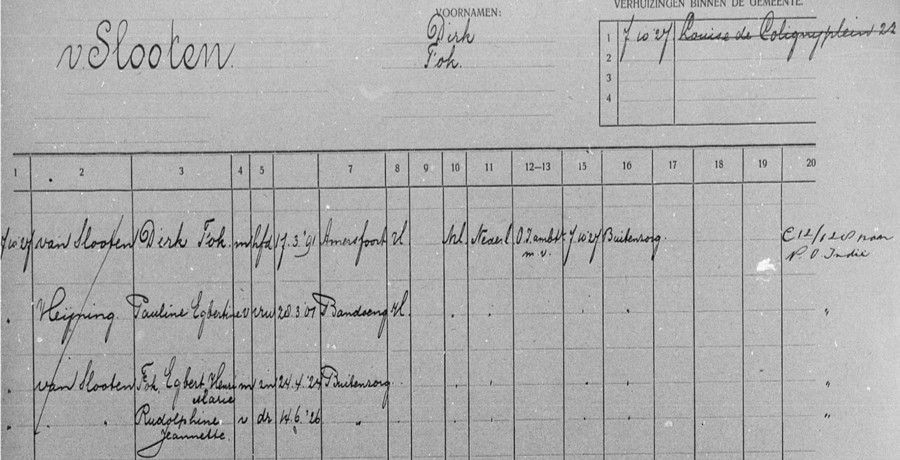 VOORNAMEN:
VERHUIZINGEN BINNEN DE GEMEENTE.
v. Slooten.
Dirk
Joh.
1 7 10 '27 Louise de Colignyplein 22
2
3
4
1 2 3 4 5 7 8 9 10 11 12—13 15 16 17 18 19 20
7 10 '27 van Slooten Dirk Joh. m hfd 17.3.'91 Amersfoort Nl. Nederl. O.I. ambt. 7 10 '27 Buitenzorg. naar
m.v. N.O. Indië
" Heijning. Pauline Egbertine v vrw 28.3.'01 Bandoeng "
" van Slooten Joh. Egbert Henri m zn 24.4.'24 Buitenzorg. "
Marie
" " Rudolphine v dr 14.6.'26 " "
Jeannette.